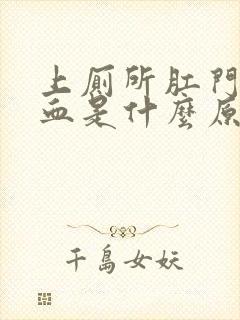 上廁所肛門
血是什麼原
千島女妖